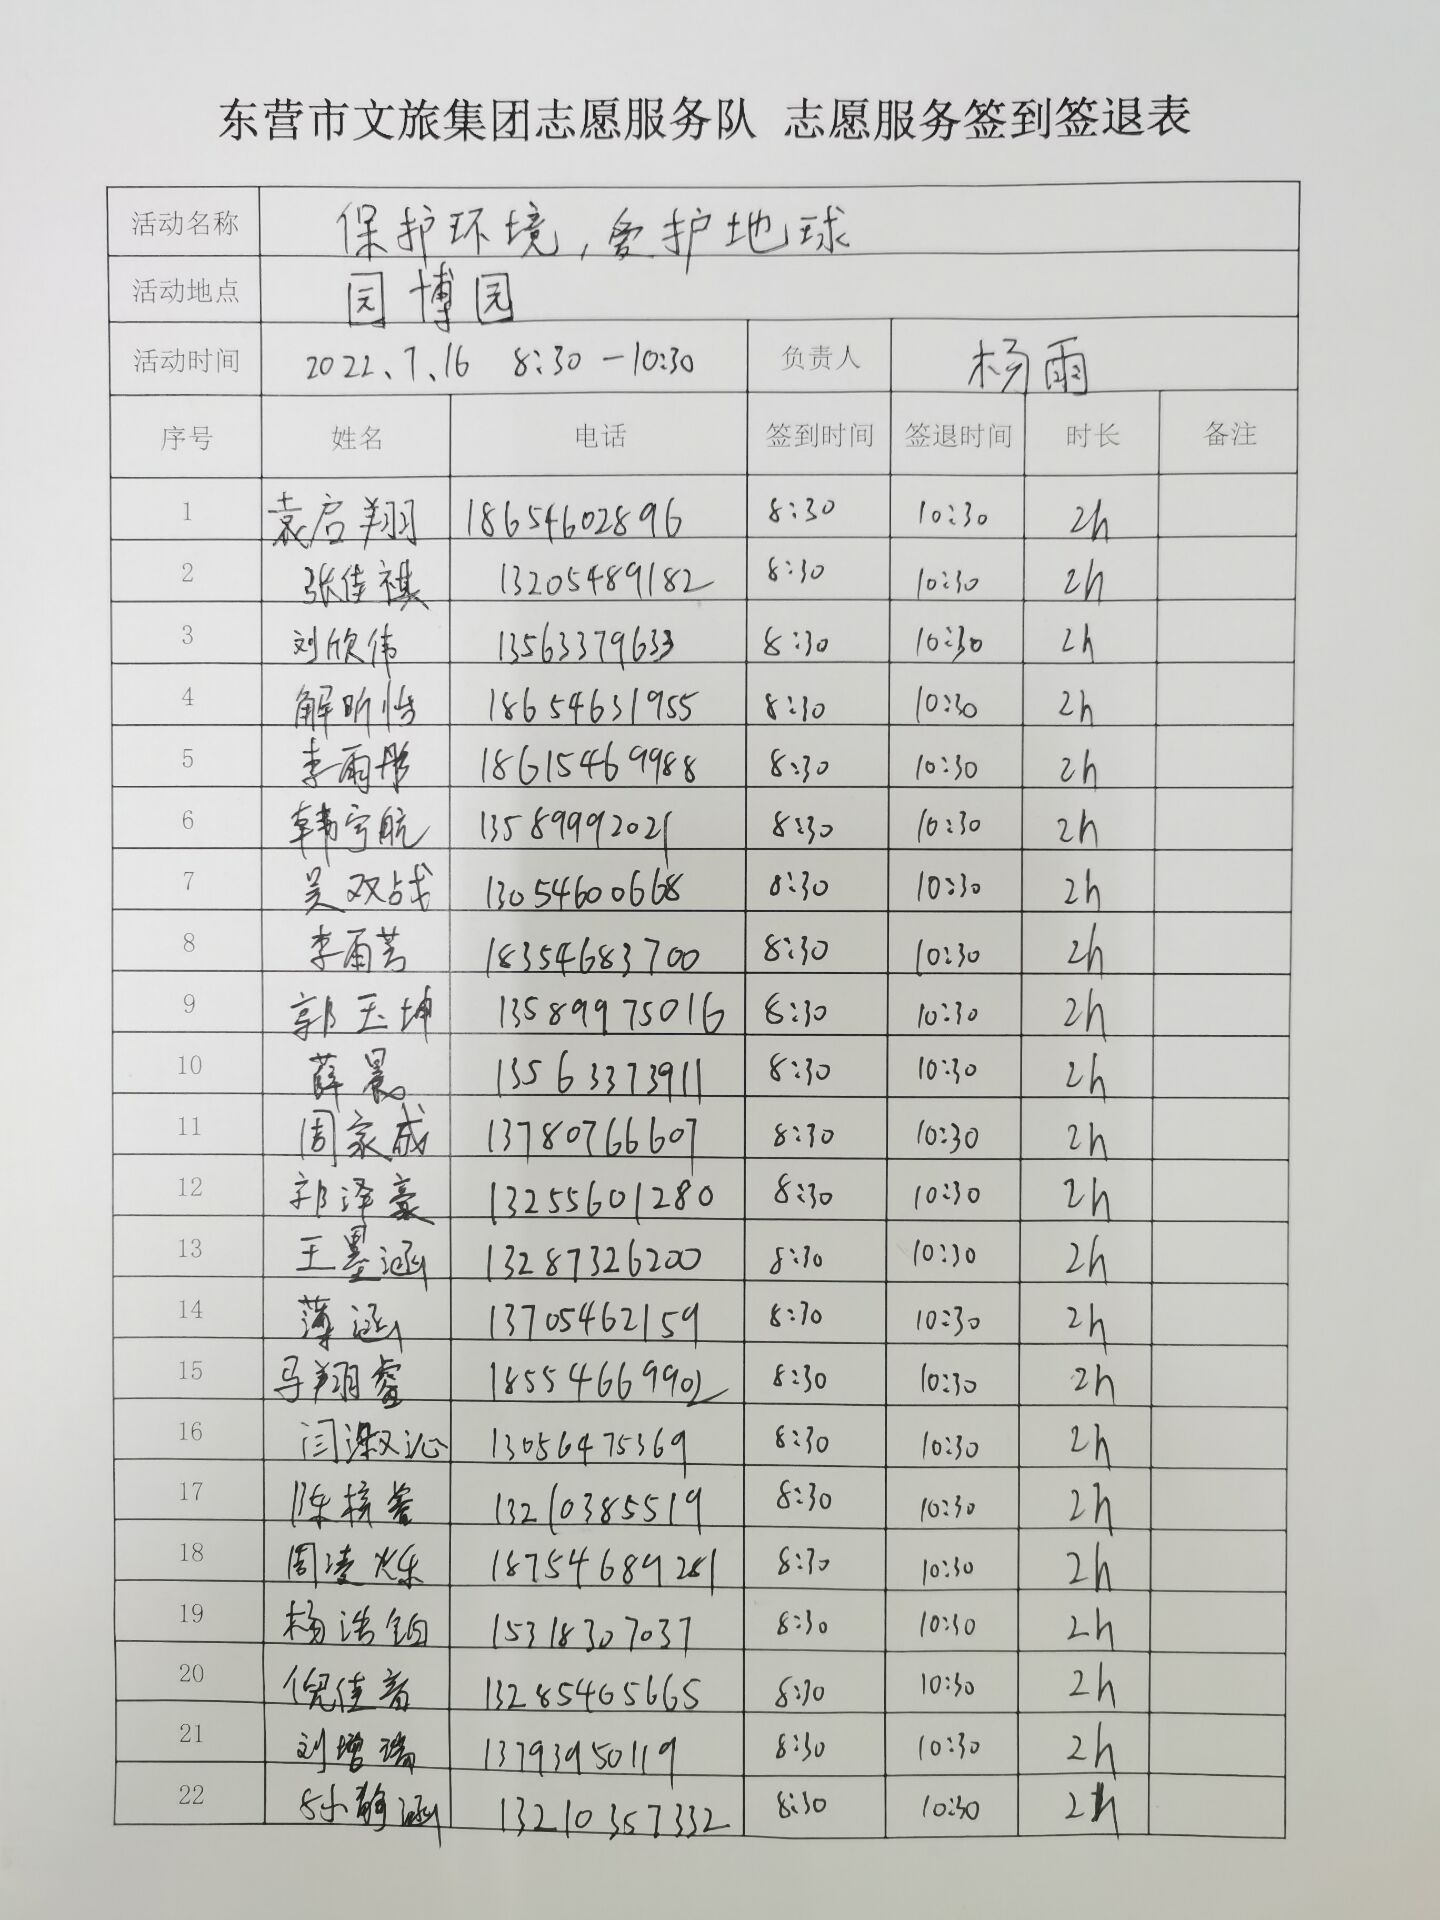 东营市文旅集团志愿服务队 志愿服务签到签退表
活动名称 保护环境,爱护地球
活动地点 园博园
活动时间 2022、7、16 8:30-10:30 负责人 杨雨
序号 姓名 电话 签到时间 签退时间 时长 备注
1 袁启翔 18654602896 8:30 10:30 2h
2 张佳祺 13205489182 8:30 10:30 2h
3 刘欣伟 13563379633 8:30 10:30 2h
4 解昕怡 18654631955 8:30 10:30 2h
5 李雨彤 18615469988 8:30 10:30 2h
6 韩宇航 13589992021 8:30 10:30 2h
7 吴双战 13054600668 8:30 10:30 2h
8 李雨芳 18354683700 8:30 10:30 2h
9 郭玉坤 13589975016 8:30 10:30 2h
10 薛晨 13563373911 8:30 10:30 2h
11 周家成 13780766607 8:30 10:30 2h
12 郭泽豪 13255601280 8:30 10:30 2h
13 王墨涵 13287326200 8:30 10:30 2h
14 薄涵 13705462159 8:30 10:30 2h
15 马翔睿 18554669902 8:30 10:30 2h
16 闫淑沁 13056475369 8:30 10:30 2h
17 陈梓睿 13210385519 8:30 10:30 2h
18 周凌烁 18754689281 8:30 10:30 2h
19 杨浩铂 15318307037 8:30 10:30 2h
20 倪佳音 13285465665 8:30 10:30 2h
21 刘增瑞 13793950119 8:30 10:30 2h
22 孙静涵 13210357332 8:30 10:30 2h